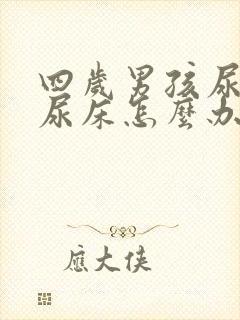 四歲男孩尿
尿床怎麼办
應大俠